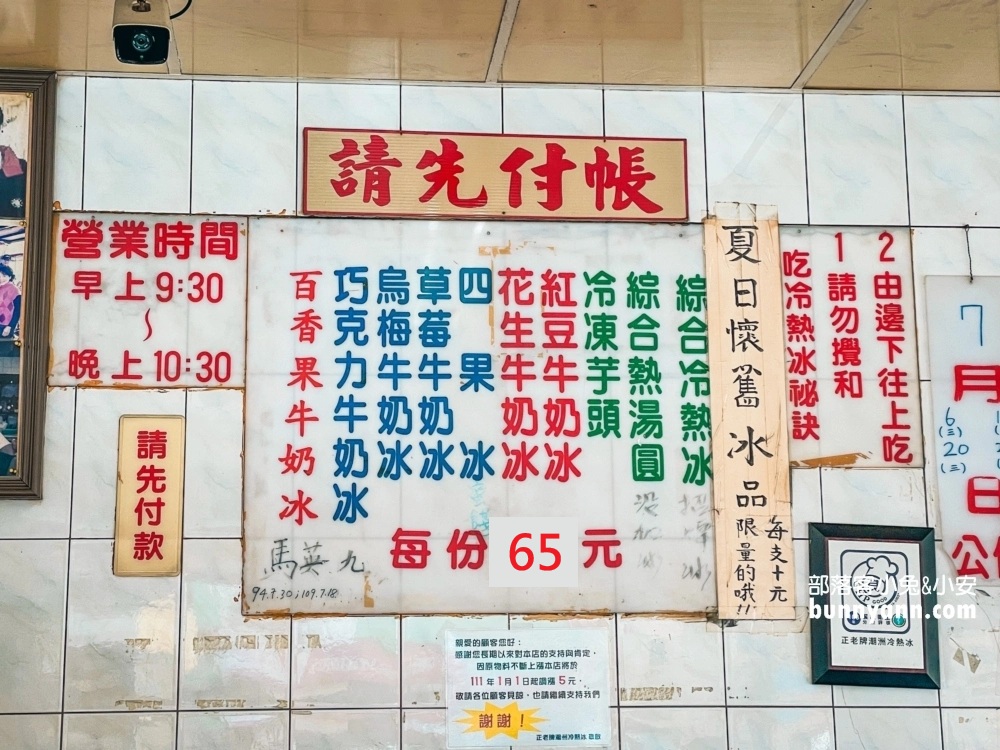 請先付帳
營業時間
早上9:30
~
晚上10:30
請先付款
2由邊下往上吃
1請勿攪和
吃冷熱冰祕訣
夏日懷舊冰品
限量的哦!!
每支十元
綜合冷熱冰
綜合熱湯圓
冷凍芋頭
紅豆牛奶冰
花生牛奶冰
四果冰
草莓牛奶冰
烏梅牛奶冰
巧克力牛奶冰
百香果牛奶冰
每份65元
馬英九
94.7.30;109.7.18
親愛的顧客您好:
感謝您長期以來對本店的支持與肯定,
因原物料不斷上漲本店將於
111年1月1日起調漲5元,
敬請各位顧客見諒,也請繼續支持我們
謝謝!
正老牌潮洲冷熱冰 敬啟
7
月
6
(三)
20
(三)
日
公休
正老牌潮洲冷熱冰
部落客小兔&小安
bunnyann.com